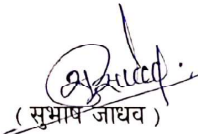 ( सुभाष जाधव )